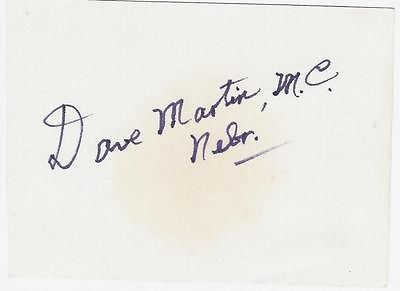 Dave Martin, M.C.
Nebr.